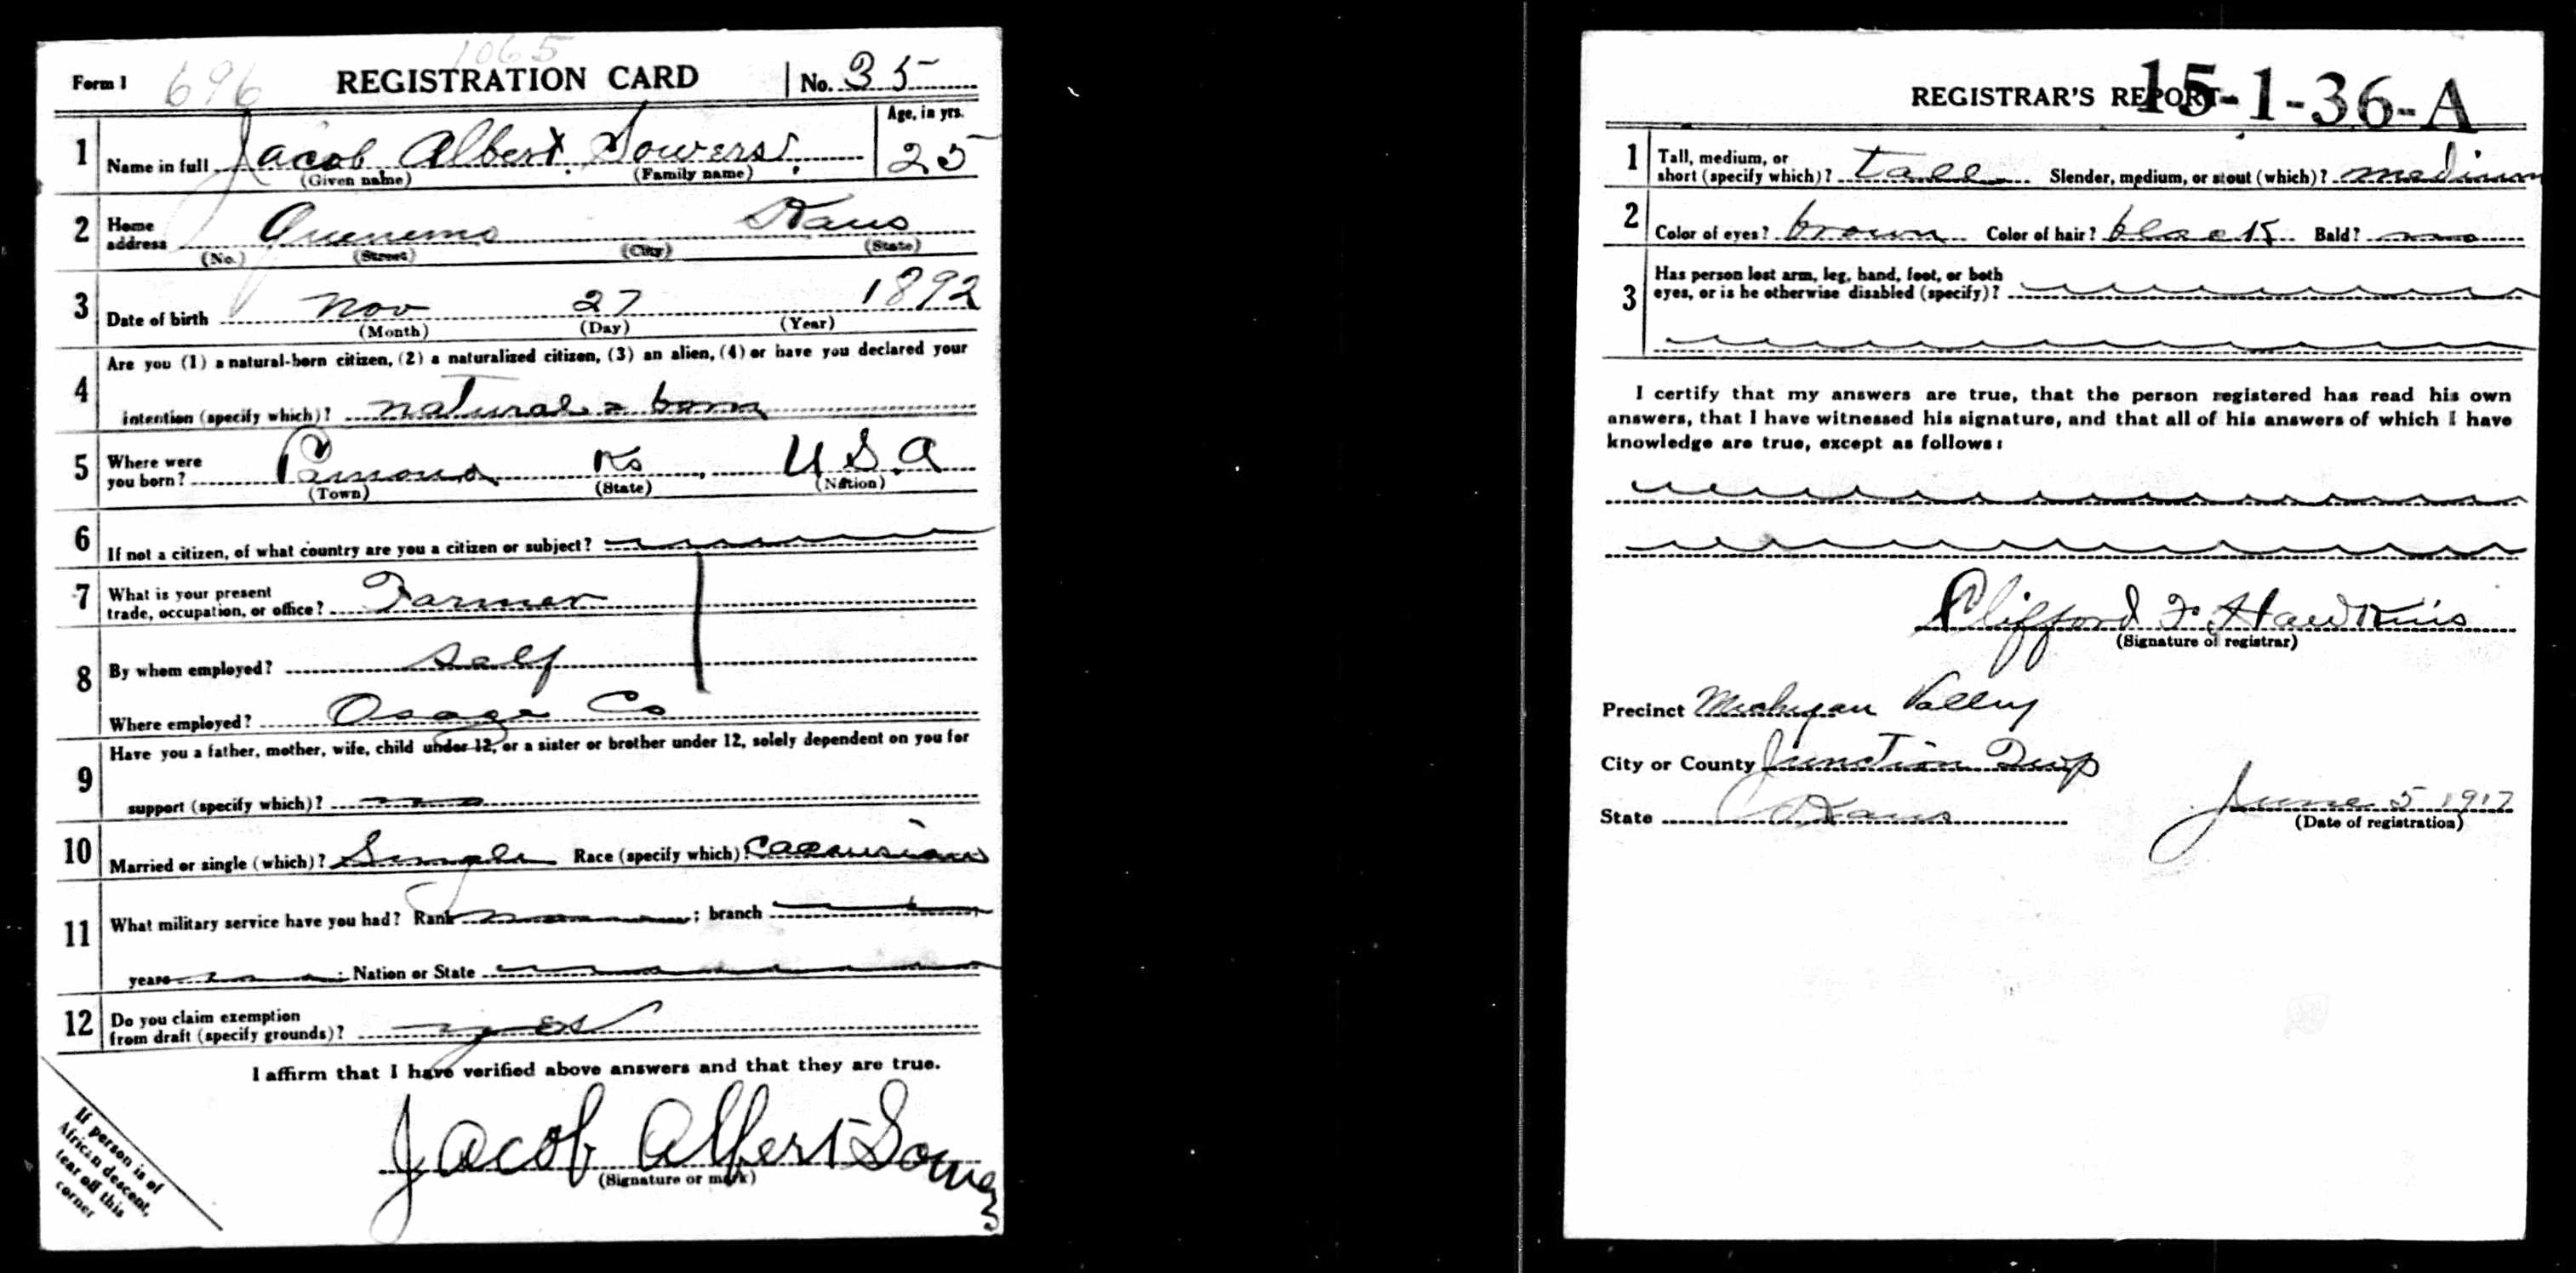 1065
Form 1 696 REGISTRATION CARD No. 35
Age, in yrs.
1 Name in full Jacob Albert Sowers 25
(Given name) (Family name)
2 Home address Quenemo Kans
(No.) (Street) (City) (State)
3 Date of birth Nov 27 1892
(Month) (Day) (Year)
4 Are you (1) a natural-born citizen, (2) a naturalized citizen, (3) an alien, (4) or have you declared your
intention (specify which)? natural-born
5 Where were you born? Pomona Ks, U.S.A
(Town) (State) (Nation)
6 If not a citizen, of what country are you a citizen or subject?
7 What is your present trade, occupation, or office? Farmer
8 By whom employed? self
Where employed? Osage Co
9 Have you a father, mother, wife, child under 12, or a sister or brother under 12, solely dependent on you for
support (specify which)? no
10 Married or single (which)? Single Race (specify which)? Caucasian
11 What military service have you had? Rank ; branch
years ; Nation or State
12 Do you claim exemption from draft (specify grounds)? yes
I affirm that I have verified above answers and that they are true.
Jacob Albert Sowers
(Signature or mark)
If person is of
African descent,
tear off this
corner
REGISTRAR'S REPORT 15-1-36-A
1 Tall, medium, or short (specify which)? tall Slender, medium, or stout (which)? medium
2 Color of eyes? brown Color of hair? black Bald? no
3 Has person lost arm, leg, hand, foot, or both
eyes, or is he otherwise disabled (specify)?
I certify that my answers are true, that the person registered has read his own
answers, that I have witnessed his signature, and that all of his answers of which I have
knowledge are true, except as follows:
Clifford F. Hawkins
(Signature of registrar)
Precinct Michigan Valley
City or County Junction Twp
State Kans June 5 1917
(Date of registration)